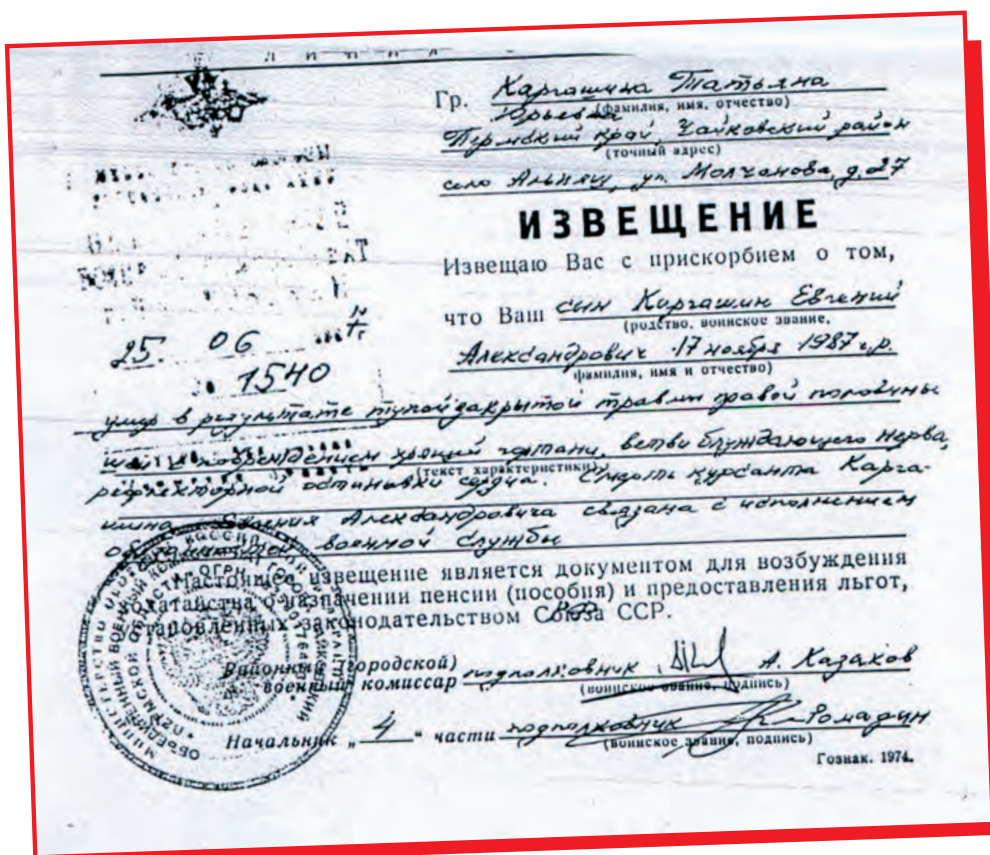 Гр. Каргашина Татьяна
(фамилия, имя, отчество)
Юрьевна
Пермский край, Чайковский район
(точный адрес)
село Альняш, ул. Молчанова, д. 27
ИЗВЕЩЕНИЕ
Извещаю Вас с прискорбием о том,
что Ваш сын Каргашин Евгений
(родство, воинское звание,
Александрович 17 ноября 1987 г.р.
фамилия, имя и отчество)
25. 06
1540
умер в результате тупой закрытой травмы правой половины
шеи с повреждением хрящей гортани, ветви блуждающего нерва,
(текст характеристики)
рефлекторной остановки сердца. Смерть курсанта Карга-
шина Евгения Александровича связана с исполнением
военной службы
Настоящее извещение является документом для возбуждения
ходатайства о назначении пенсии (пособия) и предоставления льгот,
установленных законодательством Союза ССР.
Районный (городской)
военный комиссар подполковник А. Казаков
(воинское звание, подпись)
Начальник „4“ части подполковник
(воинское звание, подпись)
Гознак. 1974.